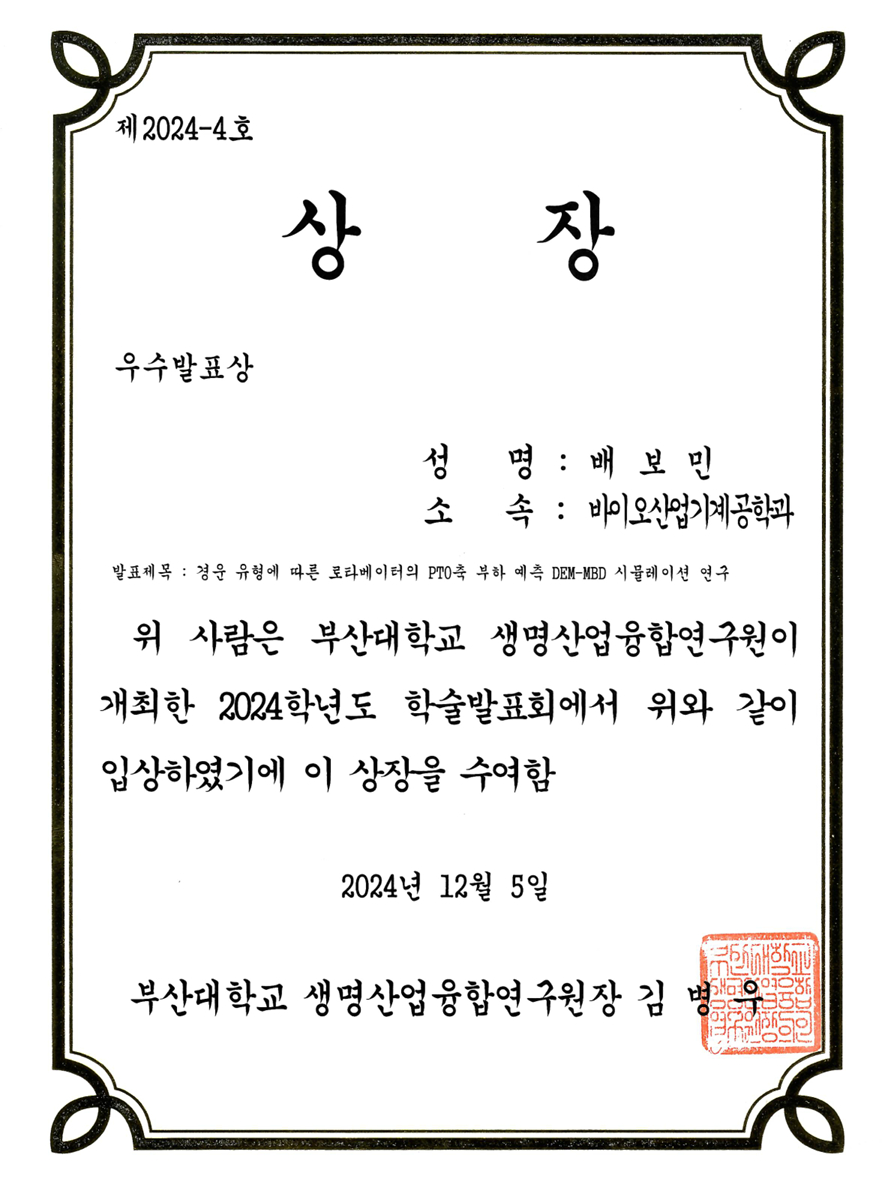 제2024-4호
상 장
우수발표상
성 명 : 배 보 민
소 속 : 바이오산업기계공학과
발표제목 : 경운 유형에 따른 로타베이터의 PTO축 부하 예측 DEM-MBD 시뮬레이션 연구
위 사람은 부산대학교 생명산업융합연구원이
개최한 2024학년도 학술발표회에서 위와 같이
입상하였기에 이 상장을 수여함
2024년 12월 5일
부산대학교 생명산업융합연구원장 김 병 우